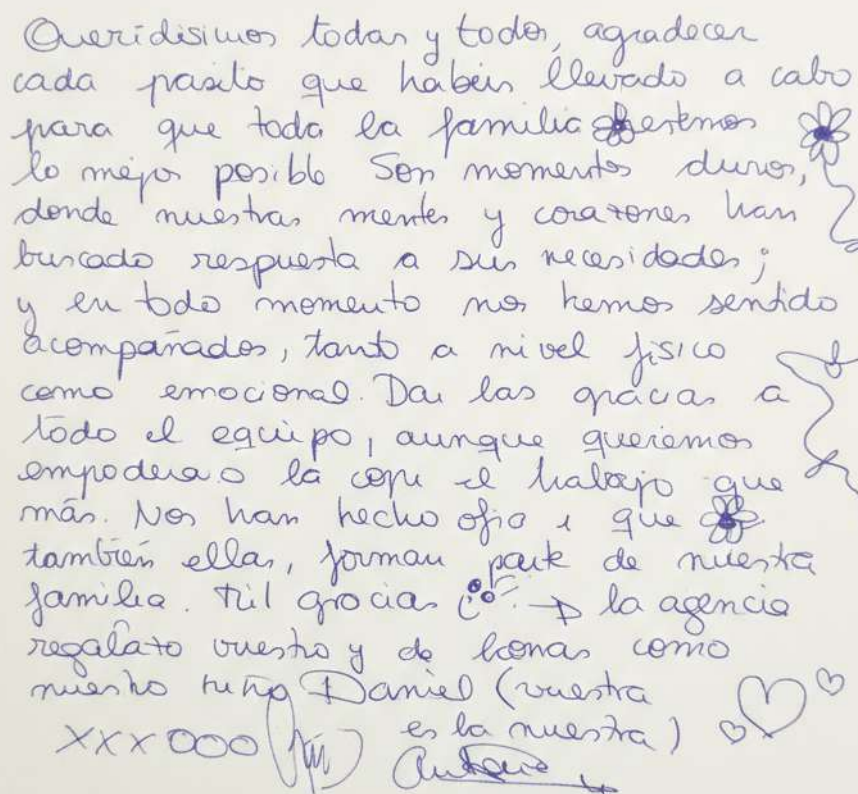 Queridisimos todas y todos, agradecer
cada pasito que habéis llevado a cabo
para que toda la familia estemos
lo mejor posible Son momentos duros,
donde nuestras mentes y corazones han
buscado respuesta a sus necesidades;
y en todo momento nos hemos sentido
acompañados, tanto a nivel físico
como emocional. Dar las gracias a
todo el equipo, aunque queremos
la el trabajo que
más. Nos han hecho que
también ellas, forman parte de nuestra
familia. Mil gracias la agencia
vuestro y de como
nuestro niño Daniel (vuestra
es la nuestra)
XXX OOO